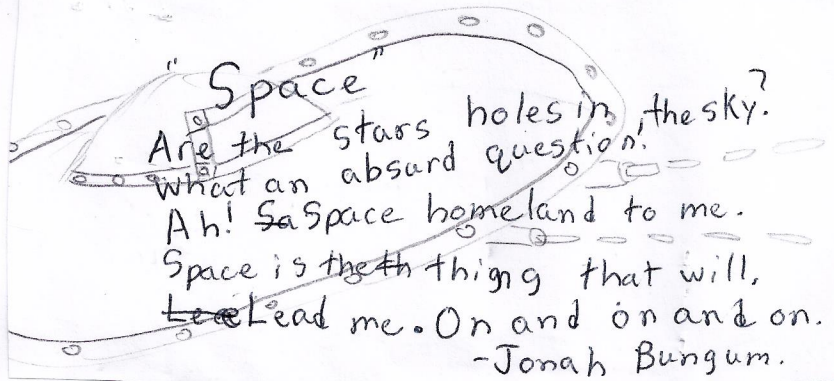 "Space"
Are the stars holes in the sky?
What an absurd question!
Ah! Sa Space homeland to me.
Space is the th thigng that will,
Lee Lead me. On and on and on.
-Jonah Bungum.